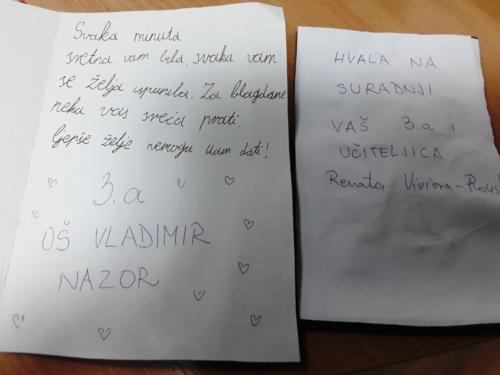 Svaka minuta
sretna vam bila, svaka vam
se želja ispunila. Za blagdane
neka vas sreća prati.
ljepše želje nemogu vam dati!
3.a
OŠ VLADIMIR
NAZOR
HVALA NA
SURADNJI
VAŠ 3.a i
UČITELJICA
Renata